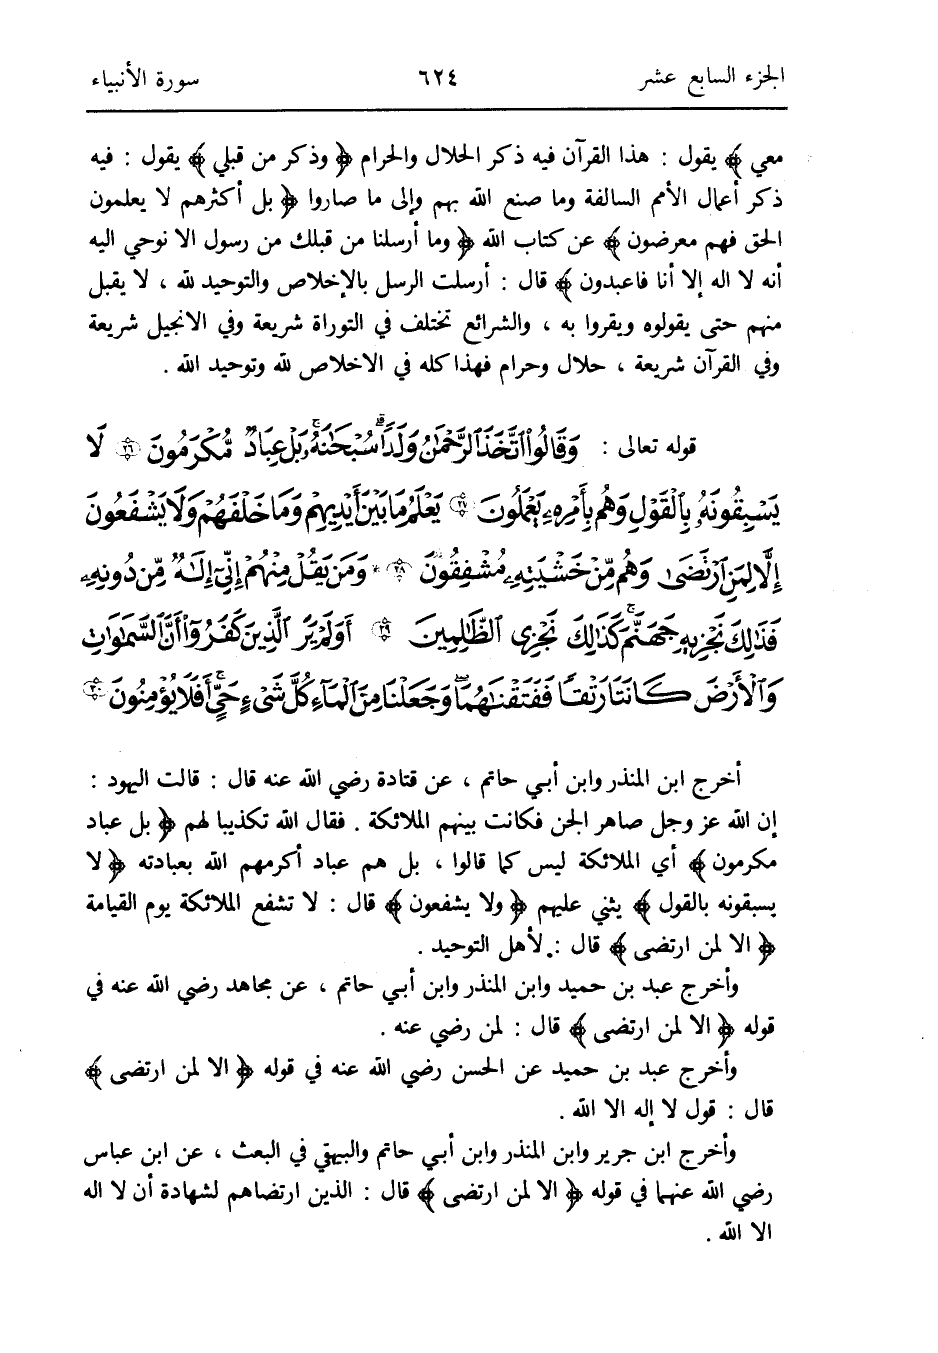 الجزء السابع عشر ٦٢٤ سورة الأنبياء
معي ﴾ يقول : هذا القرآن فيه ذكر الحلال والحرام ﴿ وذكر من قبلي ﴾ يقول : فيه
ذكر أعمال الأمم السالفة وما صنع الله بهم وإلى ما صاروا ﴿ بل أكثرهم لا يعلمون
الحق فهم معرضون ﴾ عن كتاب الله ﴿ وما أرسلنا من قبلك من رسول الا نوحي اليه
أنه لا اله إلا أنا فاعبدون ﴾ قال : أرسلت الرسل بالإخلاص والتوحيد لله ، لا يقبل
منهم حتى يقولوه ويقروا به ، والشرائع تختلف في التوراة شريعة وفي الانجيل شريعة
وفي القرآن شريعة ، حلال وحرام فهذا كله في الاخلاص لله وتوحيد الله .
قوله تعالى : وَقَالُوا۟ ٱتَّخَذَ ٱلرَّحْمَٰنُ وَلَدًاۗ سُبْحَٰنَهُۥۚ بَلْ عِبَادٌ مُّكْرَمُونَ ۝٢٦ لَا
يَسْبِقُونَهُۥ بِٱلْقَوْلِ وَهُم بِأَمْرِهِۦ يَعْمَلُونَ ۝٢٧ يَعْلَمُ مَا بَيْنَ أَيْدِيهِمْ وَمَا خَلْفَهُمْ وَلَا يَشْفَعُونَ
إِلَّا لِمَنِ ٱرْتَضَىٰ وَهُم مِّنْ خَشْيَتِهِۦ مُشْفِقُونَ ۝٢٨ * وَمَن يَقُلْ مِنْهُمْ إِنِّىٓ إِلَٰهٌ مِّن دُونِهِۦ
فَذَٰلِكَ نَجْزِيهِ جَهَنَّمَۚ كَذَٰلِكَ نَجْزِى ٱلظَّٰلِمِينَ ۝٢٩ أَوَلَمْ يَرَ ٱلَّذِينَ كَفَرُوٓا۟ أَنَّ ٱلسَّمَٰوَٰتِ
وَٱلْأَرْضَ كَانَتَا رَتْقًا فَفَتَقْنَٰهُمَاۖ وَجَعَلْنَا مِنَ ٱلْمَآءِ كُلَّ شَىْءٍ حَىٍّۖ أَفَلَا يُؤْمِنُونَ ۝٣٠
أخرج ابن المنذر وابن أبي حاتم ، عن قتادة رضي الله عنه قال : قالت اليهود :
إن الله عز وجل صاهر الجن فكانت بينهم الملائكة . فقال الله تكذيبا لهم ﴿ بل عباد
مكرمون ﴾ أي الملائكة ليس كما قالوا ، بل هم عباد أكرمهم الله بعبادته ﴿ لا
يسبقونه بالقول ﴾ يثني عليهم ﴿ ولا يشفعون ﴾ قال : لا تشفع الملائكة يوم القيامة
﴿ الا لمن ارتضى ﴾ قال : لأهل التوحيد .
وأخرج عبد بن حميد وابن المنذر وابن أبي حاتم ، عن مجاهد رضي الله عنه في
قوله ﴿ الا لمن ارتضى ﴾ قال : لمن رضي عنه .
وأخرج عبد بن حميد عن الحسن رضي الله عنه في قوله ﴿ الا لمن ارتضى ﴾
قال : قول لا إله الا الله .
وأخرج ابن جرير وابن المنذر وابن أبي حاتم والبيهقي في البعث ، عن ابن عباس
رضي الله عنهما في قوله ﴿ الا لمن ارتضى ﴾ قال : الذين ارتضاهم لشهادة أن لا اله
الا الله .